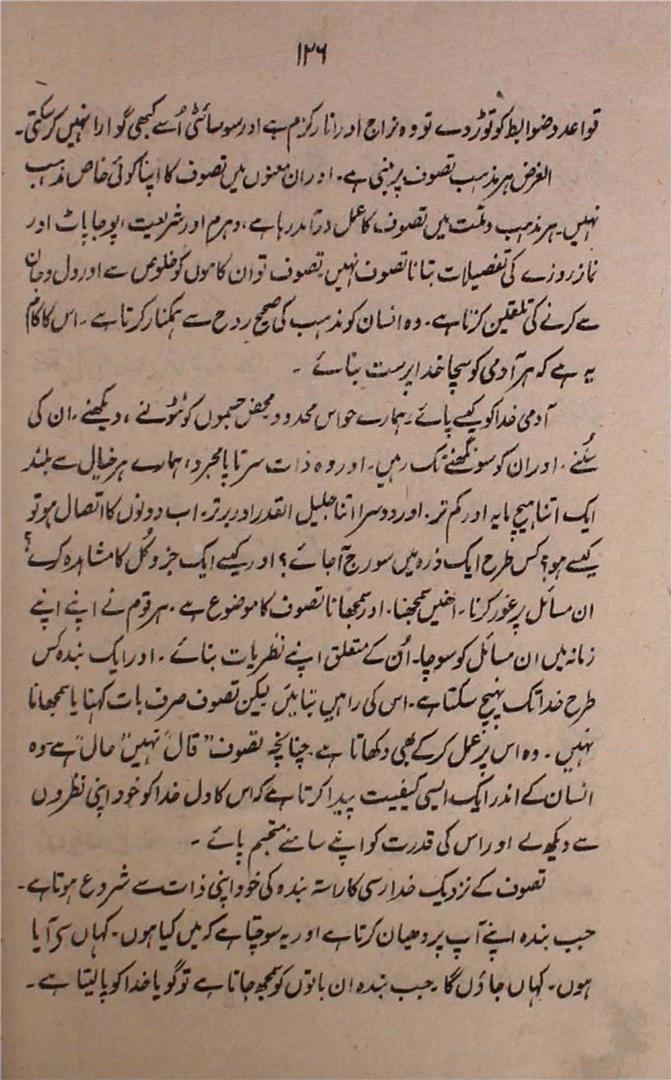 ۱۲۶
قواعد و ضوابط کو توڑ دے تو وہ نراج اور انارکزم ہے اور سوسائٹی اُسے کبھی گوارا نہیں کر سکتی۔
الغرض ہر مذہب تصوف پر مبنی ہے۔ اور ان معنوں میں تصوف کا اپنا کوئی خاص مذہب
نہیں۔ ہر مذہب و ملت میں تصوف کا عمل درآمد رہا ہے، دھرم اور شریعت، پوجا پاٹ اور
نماز روزے کی تفصیلات بتانا تصوف نہیں۔ تصوف تو ان کاموں کو خلوص سے اور دل و جان
سے کرنے کی تلقین کرتا ہے۔ وہ انسان کو مذہب کی صحیح روح سے ہمکنار کرتا ہے۔ اس کا کام
یہ ہے کہ ہر آدمی کو سچا خدا پرست بنائے ۔
آدمی خدا کو کیسے پائے۔ ہمارے حواس محدود محض جسموں کو ٹٹولنے ، دیکھنے ، ان کی
سننے ، اور ان کو سونگھنے تک رہیں۔ اور وہ ذات سرتا پا مجرد، ہمارے ہر خیال سے بلند
ایک اتنا ہیچ مایہ اور کم تر۔ اور دوسرا اتنا جلیل القدر اور برتر۔ اب دونوں کا اتصال ہو تو
کیسے ہو؟ کس طرح ایک ذرہ میں سورج آجائے؟ اور کیسے ایک جزو کُل کا مشاہدہ کرے؟
ان مسائل پر غور کرنا۔ انھیں سمجھنا۔ اور سمجھانا تصوف کا موضوع ہے۔ ہر قوم نے اپنے اپنے
زمانہ میں ان مسائل کو سوچا۔ اُن کے متعلق اپنے نظریات بنائے ۔ اور ایک بندہ کس
طرح خدا تک پہنچ سکتا ہے۔ اس کی راہیں بتائیں لیکن تصوف صرف بات کہنا یا سمجھانا
نہیں ۔ وہ اس پر عمل کر کے بھی دکھاتا ہے چنانچہ تصوف "قال" نہیں "حال" ہے۔ وہ
انسان کے اندر ایک ایسی کیفیت پیدا کرتا ہے کہ اس کا دل خدا کو خود اپنی نظروں
سے دیکھ لے اور اس کی قدرت کو اپنے سامنے متجسم پائے ۔
تصوف کے نزدیک خدا رسی کا راستہ بندہ کی خود اپنی ذات سے شروع ہوتا ہے۔
جب بندہ اپنے آپ پر دھیان کرتا ہے اور یہ سوچتا ہے کہ میں کیا ہوں۔ کہاں سے آیا
ہوں۔ کہاں جاؤں گا۔ جب بندہ ان باتوں کو سمجھ جاتا ہے تو گویا خدا کو پا لیتا ہے۔